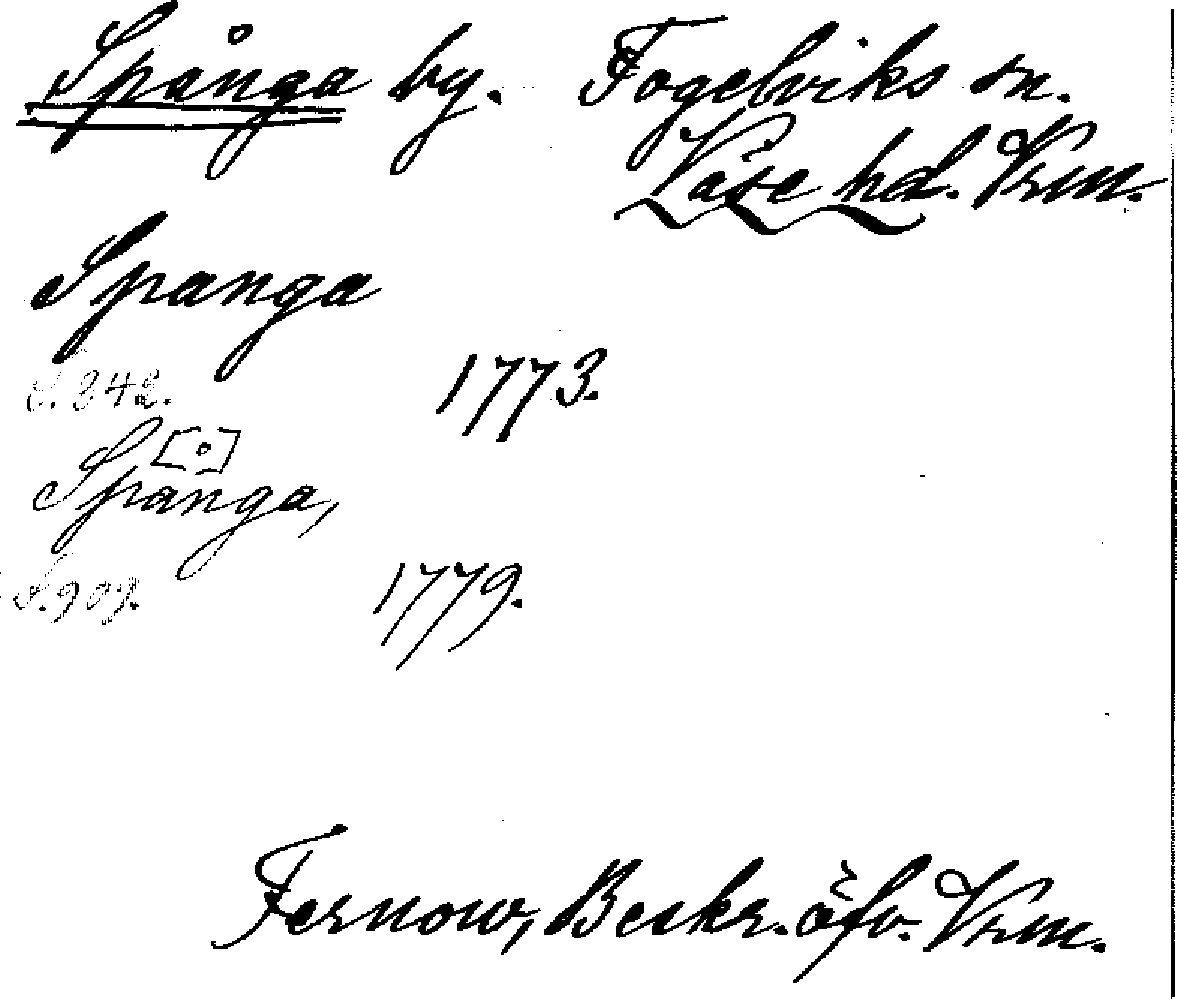 Spånga by. Fogelviks sn.
Väse hd. Vrm.
Spanga
S. 342.
1773.
[°]
Spanga,
S. 909.
1779.
Fernow, Beskr. öfv. Vrm.